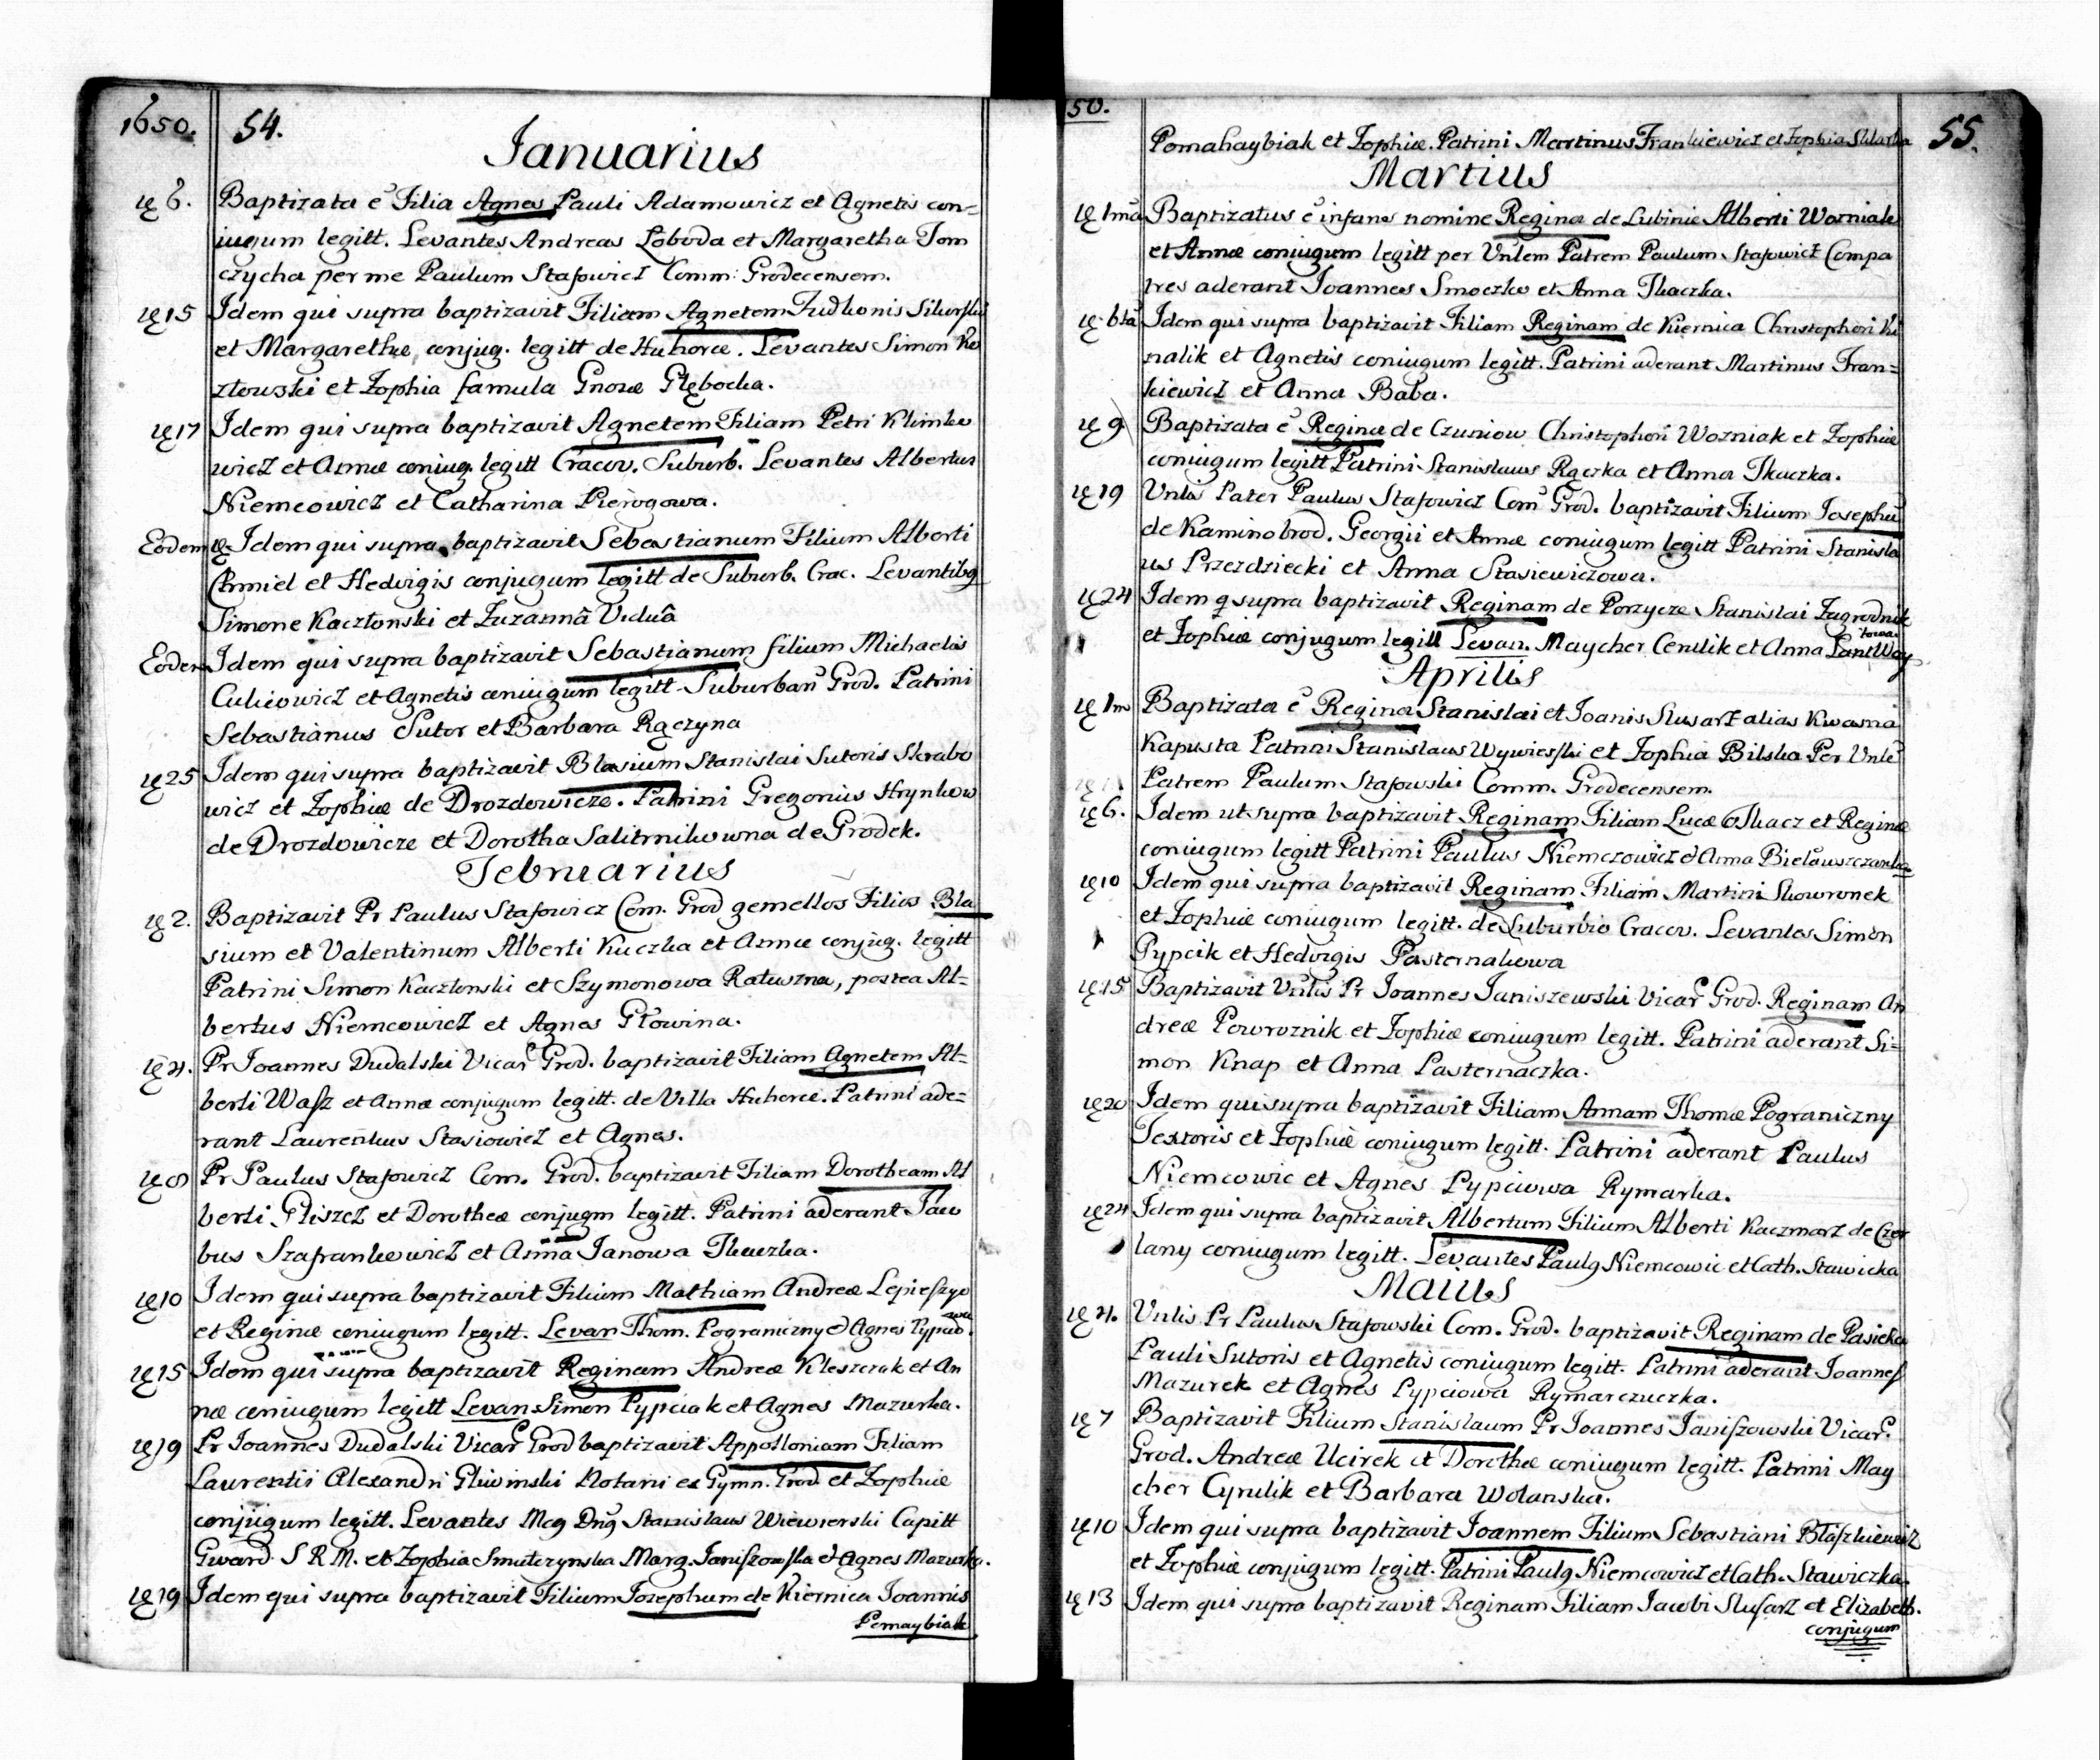 1650. 54.
Ianuarius
6. Baptizata e Filia Agnes Pauli Adamowicz et Agnetis con=
iugum legitt. Levantes Andreas Loboda et Margaretha Tom
czycha per me Paulum Stasowicz Comm: Grodecensem.
15 Idem qui supra baptizavit Filiam Agnetem
et Margarethæ conjug. legitt de Huhorce. Levantes Simon Ko
złowski et Zophia famula Gnosæ Głębocka.
17 Idem qui supra baptizavit Agnetem Filiam Petri Klimko
wicz et Annæ coniug. legitt Cracov. Suburb. Levantes Albertus
Niemcowicz et Catharina Pierogowa.
Eodem Idem qui supra baptizavit Sebastianum Filium Alberti
Chmiel et Hedvigis conjugum legitt de Suburb. Crac. Levantibq
Simone Kaczłonski et Zuzannâ Viduâ
Eodem Idem qui supra baptizavit Sebastianum filium Michaelis
et Agnetis coniugum legitt Suburban Grod. Patrini
Sebastianus Sutor et Barbara Rączyna
25 Idem qui supra baptizavit Blasium Stanislai Sutoris Skrabo
wicz et Zophiæ de Drozdowicze. Patrini Gregorius Hrynkow
de Drozdowicze et Dorotha Salitrnikowna de Grodek.
Februarius
2. Baptizavit Pr Paulus Stasowicz Com. Grod gemellos Filios Bla
sium et Valentinum Alberti Kuczka et Annæ conjug. legitt
Patrini Simon Kaczłonski et Szymonowa Ratuszna, postea Al=
bertus Niemcowicz et Agnes Głowina.
4. Pr Joannes Dudalski Vicar Grod. baptizavit Filiam Agnetem Al=
berti Wasz et Annæ conjugum legitt. de Villa Huhorce. Patrini ade=
rant Laurentius Stasiowicz et Agnes.
8 Pr Paulus Stasowicz Com. Grod. baptizavit Filiam Dorotheam Al
berti Gliszcz et Dorotheæ conjugm legitt. Patrini aderant Iaco
bus Szafrankowicz et Anna Janowa Tkaczka.
10 Idem qui supra baptizavit Filium Mathiam Andreæ
et Reginæ coniugum legitt. Levan Thom. Pograniczny et Agnes
15 Idem qui supra baptizavit Reginam Andreæ Kleszczak et An
næ coniugum legitt Levan Simon Pypciak et Agnes Mazurka.
19 Pr Joannes Dudalski Vicar Grod baptizavit Appolloniam Filiam
Laurentii Alexandri Gliwinski Notarii ex Gymn. Grod et Zophiæ
conjugum legitt. Levantes Mcg Dnq Stanislaus Wiewierski Capitt
Gward S R M. et Zophia Smuterzynska Marg. Janiszowska et Agnes Mazurka.
19 Idem qui supra baptizavit Filium Iozephum de Kiernica Joannis
Pomaybiak
50. 55.
Pomahaybiak et Zophiæ. Patrini Martinus Frankiewicz et Zophia
Martius
1ma Baptizatus e infans nomine Regina de Lubinie Alberti Wozniak
et Annæ coniugum legitt per Vnlem Patrem Paulum Stasowicz Compa
tres aderant Joannes Smoczko et Anna Tkaczka.
6ta Idem qui supra baptizavit Filiam Reginam de Kiernica Christophori Ki
nalik et Agnetis coniugum legitt. Patrini aderant Martinus Fran=
kiewicz et Anna Baba.
9 Baptizata e Regina de Czuniow Christophori Wozniak et Zophiæ
coniugum legitt Patrini Stanislaus Rączka et Anna Tkaczka.
19 Vnlis Pater Paulus Stasowicz Com Grod. baptizavit Filium Iosephu
de Kaminobrod. Georgii et Annæ coniugum legitt Patrini Stanisla
us Przezdziecki et Anna Stasiewiczowa.
24 Idem q supra baptizavit Reginam de Porzycze Stanislai Zagrodnik
et Zophiæ conjugum legitt Levan. Maycher Cerulik et Anna
Aprilis
1m Baptizata e Regina Stanislai et Joanis Slusarz alias Kwasna
Kapusta Patrini Stanislaus Wywierski et Zophia Bilska Per Vnle
Patrem Paulum Stasowski Comm. Grodecensem.
6. Idem ut supra baptizavit Reginam Filiam Lucæ Tkacz et Reginæ
coniugum legitt Patrini Paulus Niemczowicz et Anna
10 Idem qui supra baptizavit Reginam Filiam Martini Skowronek
et Zophiæ coniugum legitt. de Suburbio Cracov. Levantes Simon
Pypcik et Hedvigis Pasternakowa
15 Baptizavit Vnlis Pr Joannes Janiszewski Vicar Grod. Reginam An
dreæ Powroznik et Zophiæ coniugum legitt. Patrini aderant Si=
mon Knap et Anna Pasternaczka.
20 Idem qui supra baptizavit Filiam Annam Thomæ Pograniczny
Textoris et Zophiæ coniugum legitt. Patrini aderant Paulus
Niemcowic et Agnes Pypciowa Rymarka.
24 Idem qui supra baptizavit Albertum Filium Alberti Kaczmarz de Czer
lany coniugum legitt. Levantes Paulq Niemcowic et Cath. Stawicka
Maius
4. Vnlis Pr Paulus Stasowski Com. Grod. baptizavit Reginam de Pasieka
Pauli Sutoris et Agnetis coniugum legitt. Patrini aderant Joannes
Mazurek et Agnes Pypciowa Rymarczuczka.
7 Baptizavit Filium Stanislaum Pr Joannes Janiszowski Vicar.
Grod. Andreæ Ucirek et Dorothæ coniugum legitt. Patrini May
cher Cyrulik et Barbara Wolanska.
10 Idem qui supra baptizavit Joannem Filium Sebastiani Błaszkiewicz
et Zophiæ conjugum legitt. Patrini Paulq Niemcowicz et Cath. Stawiczka.
13 Idem qui supra baptizavit Reginam Filiam Iacobi Slusarz et Elizabeth.
conjugum